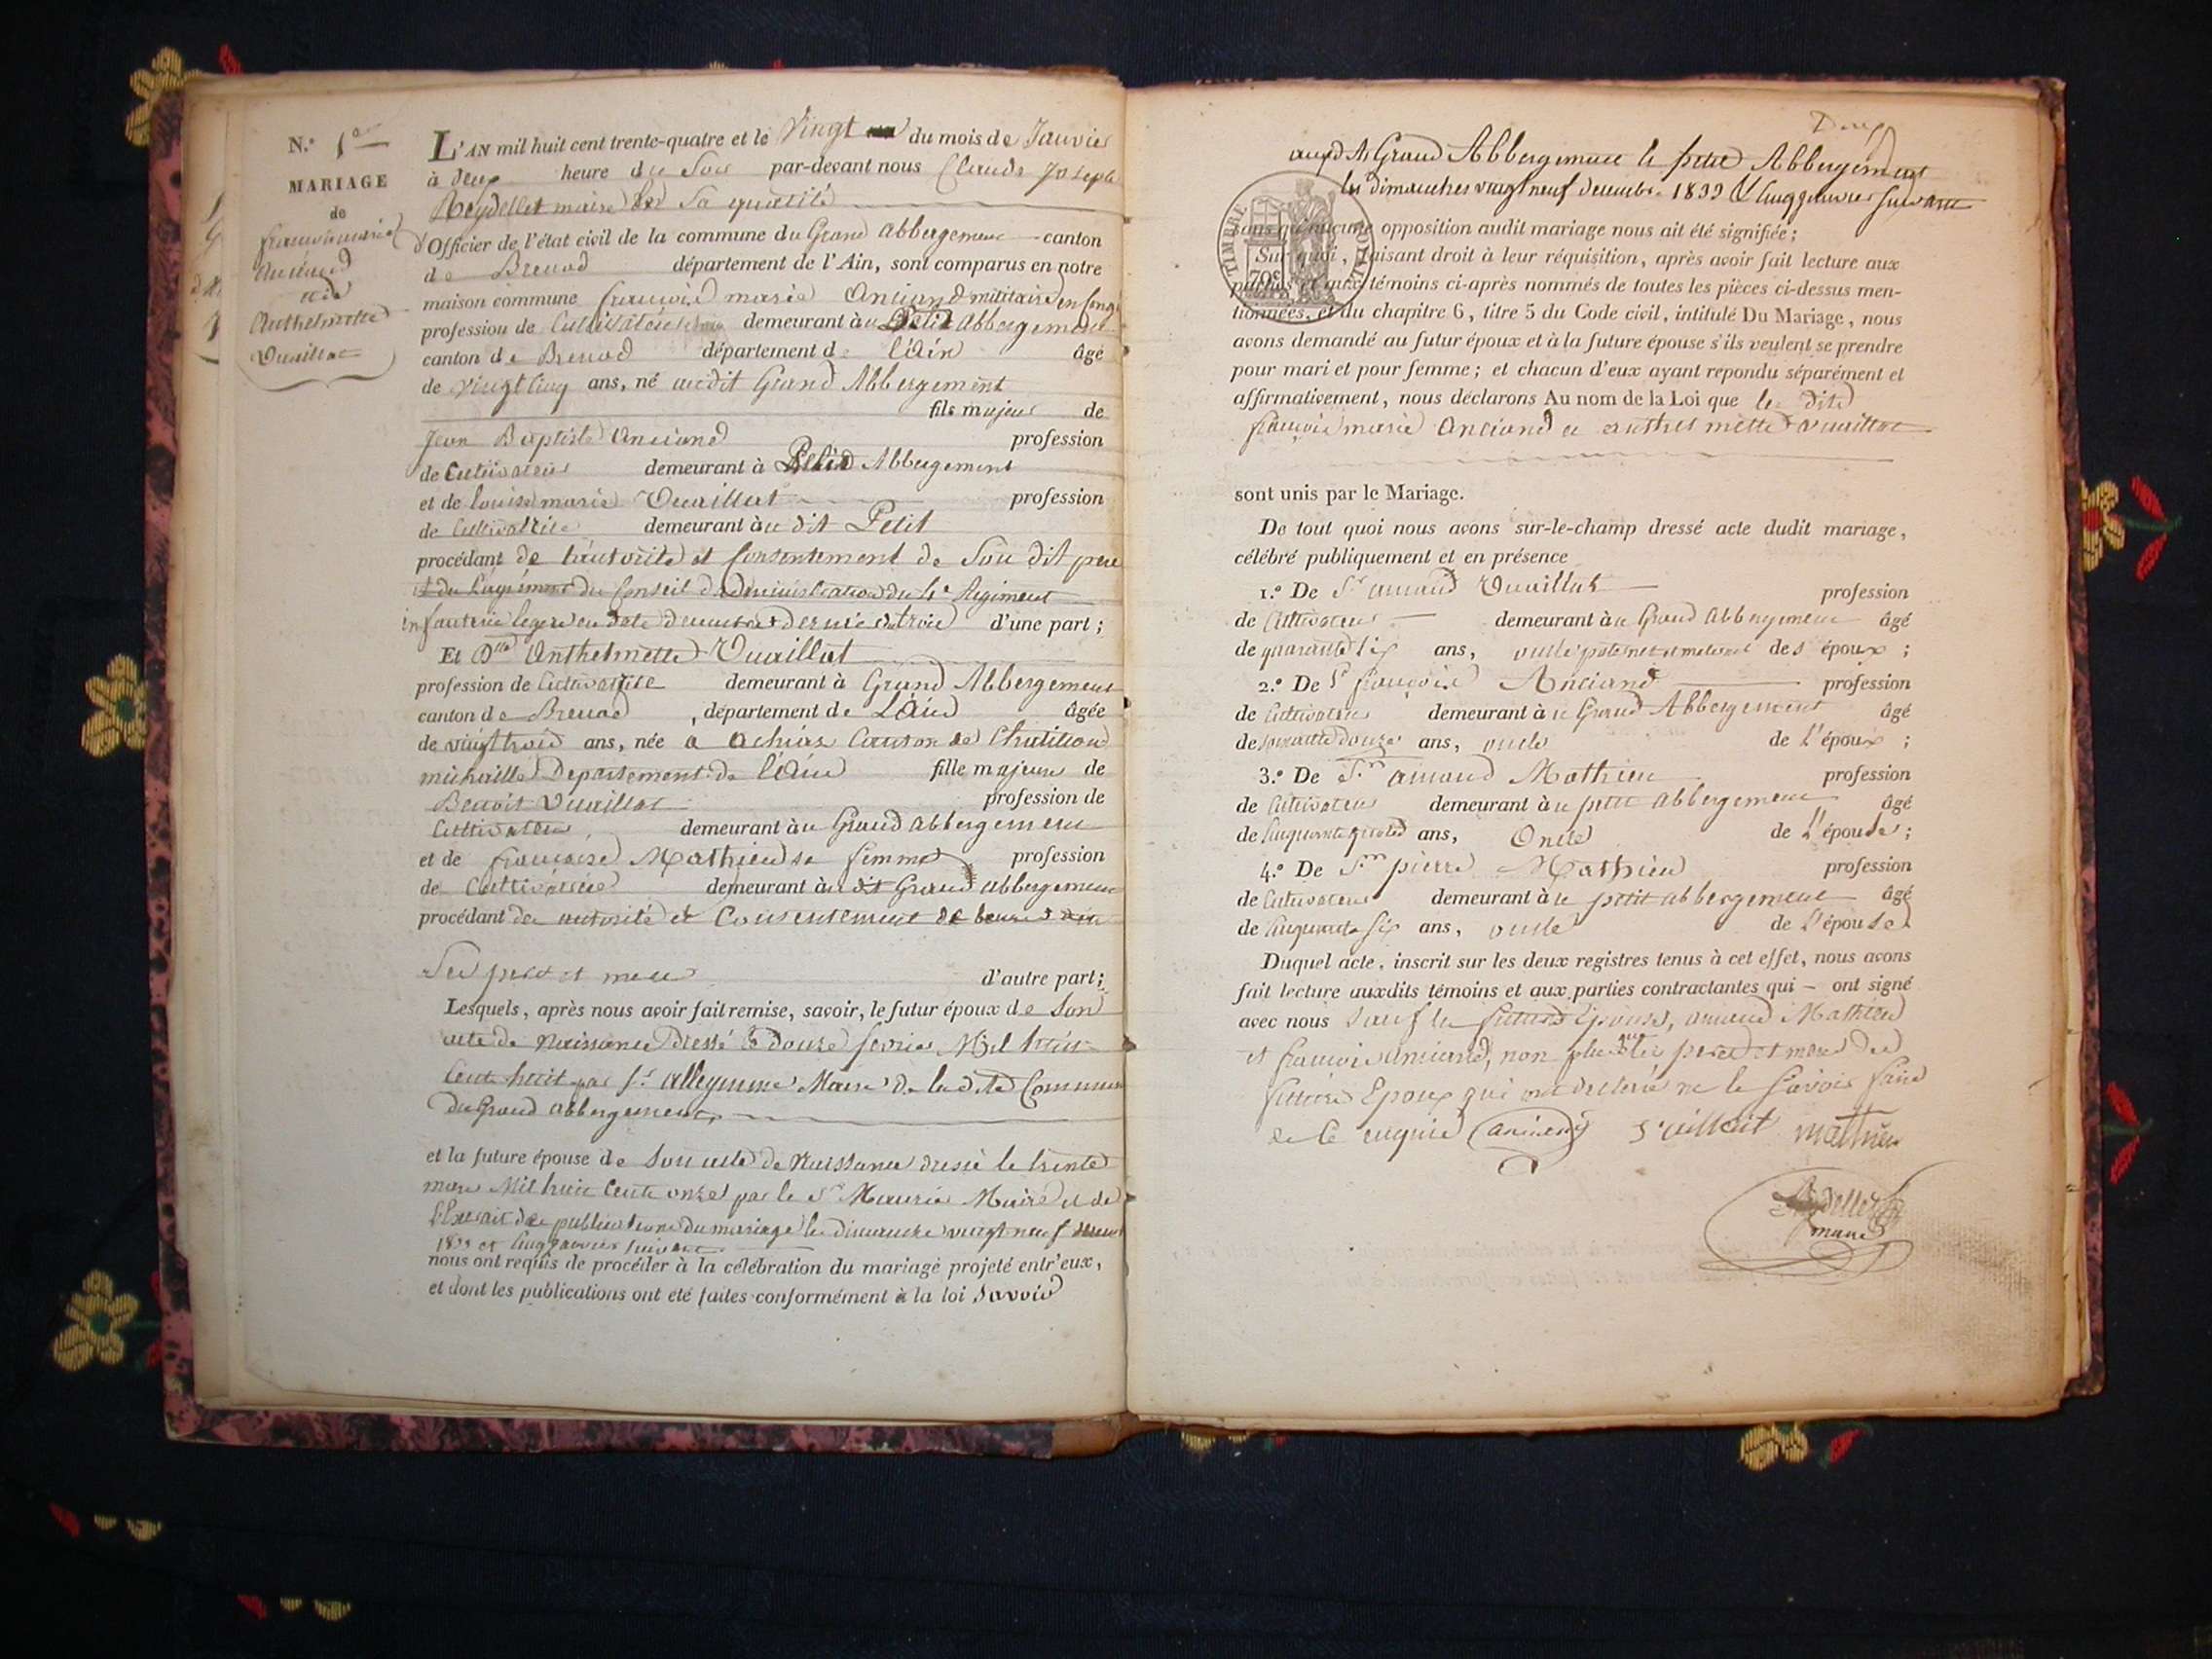 N.º 1er
MARIAGE
de
françois marie
Anciand
et de
Anthelmette
Vuaillat
L'AN mil huit cent trente-quatre et le Vingt du mois de Janvier
à deux heure du Soir par-devant nous Claude Joseph
Reydellet maire Sa qualité
d'Officier de l'état civil de la commune du Grand Abbergement canton
de Brenod département de l'Ain, sont comparus en notre
maison commune françois marie Anciand militaire en Congé
profession de Cultivateur demeurant à u Petit Abbergement
canton de Brenod département de l'Ain âgé
de vingt Cinq ans, né audit Grand Abbergement
fils majeur de
Jean Baptiste Anciand profession
de Cultivateur demeurant à Petit Abbergement
et de louise marie Vuaillat profession
de Cultivatrice demeurant à u dit Petit
procédant de l'autorité et Consentement de Son dit pere
et de l'agrément du Conseil d'administration du 4e Régiment
infanterie legere en date d'une part ;
Et Dlle Anthelmette Vuaillat
profession de Cultivatrice demeurant à Grand Abbergement
canton de Brenod , département de L'Ain âgée
de vingt trois ans, née a ochiaz Canton de Chatillon
michaille Departement de l'Ain fille majeure de
Benoit Vuaillat profession de
Cultivateur demeurant à u Grand abbergement
et de françoise Mathieu sa femme profession
de Cultivatrice demeurant à u dit Grand abbergement
procédant de autorité et Consentement de
Ses pere et mere d'autre part ;
Lesquels, après nous avoir fait remise, savoir, le futur époux de Son
acte de Naissance Dressé le douze fevrier Mil huit
Cent huit par Sr alleymme Maire de la dite Commune
du Grand abbergement
et la future épouse de Son acte de Naissance dressé le trente
mars Mil huit Cent onze par le Sr Maurier Maire et de
l'Extrait de publications du mariage le dimanche vingt neuf
1833 et Cinq janvier suivant
nous ont requis de procéder à la célébration du mariage projeté entr'eux,
et dont les publications ont eté faites conformément à la loi Savoir
Deux
Grand Abbergement le petit Abbergement
les dimanches vingt neuf decembre 1833 & Cinq janvier suivant
TIMBRE ROYAL
70c
sans qu'aucune opposition audit mariage nous ait été signifiée ;
Sur quoi, faisant droit à leur réquisition, après avoir fait lecture aux
parties et aux témoins ci-après nommés de toutes les pièces ci-dessus men-
tionnées, et du chapitre 6, titre 5 du Code civil, intitulé Du Mariage, nous
avons demandé au futur époux et à la future épouse s'ils veulent se prendre
pour mari et pour femme ; et chacun d'eux ayant repondu séparément et
affirmativement, nous déclarons Au nom de la Loi que le dit
françois marie Anciand et anthelmette Vuaillat
sont unis par le Mariage.
De tout quoi nous avons sur-le-champ dressé acte dudit mariage,
célébré publiquement et en présence
1.º De Sr amand Vuaillat profession
de Cultivateur demeurant à u Grand Abbergement âgé
de quarante six ans, oncle paternel et maternel des époux ;
2.º De Sr françois Anciand profession
de Cultivateur demeurant à u Grand Abbergement âgé
de soixante douze ans, oncle de L'époux ;
3.º De Sr amand Mathieu profession
de Cultivateur demeurant à u petit abbergement âgé
de Cinquante quatre ans, Oncle de L'épouse ;
4.º De Sr pierre Mathieu profession
de Cultivateur demeurant à u petit abbergement âgé
de Cinquante Six ans, oncle de L'épouse
Duquel acte, inscrit sur les deux registres tenus à cet effet, nous avons
fait lecture auxdits témoins et aux parties contractantes qui – ont signé
avec nous Sauf la future Epouse, amand Mathieu
et françois Anciand, non plus que les peres et mere des
futurs Epoux qui ont déclaré ne le Savoir faire
de ce enquis anciand Vuillait mathieu
Reydellet
maire